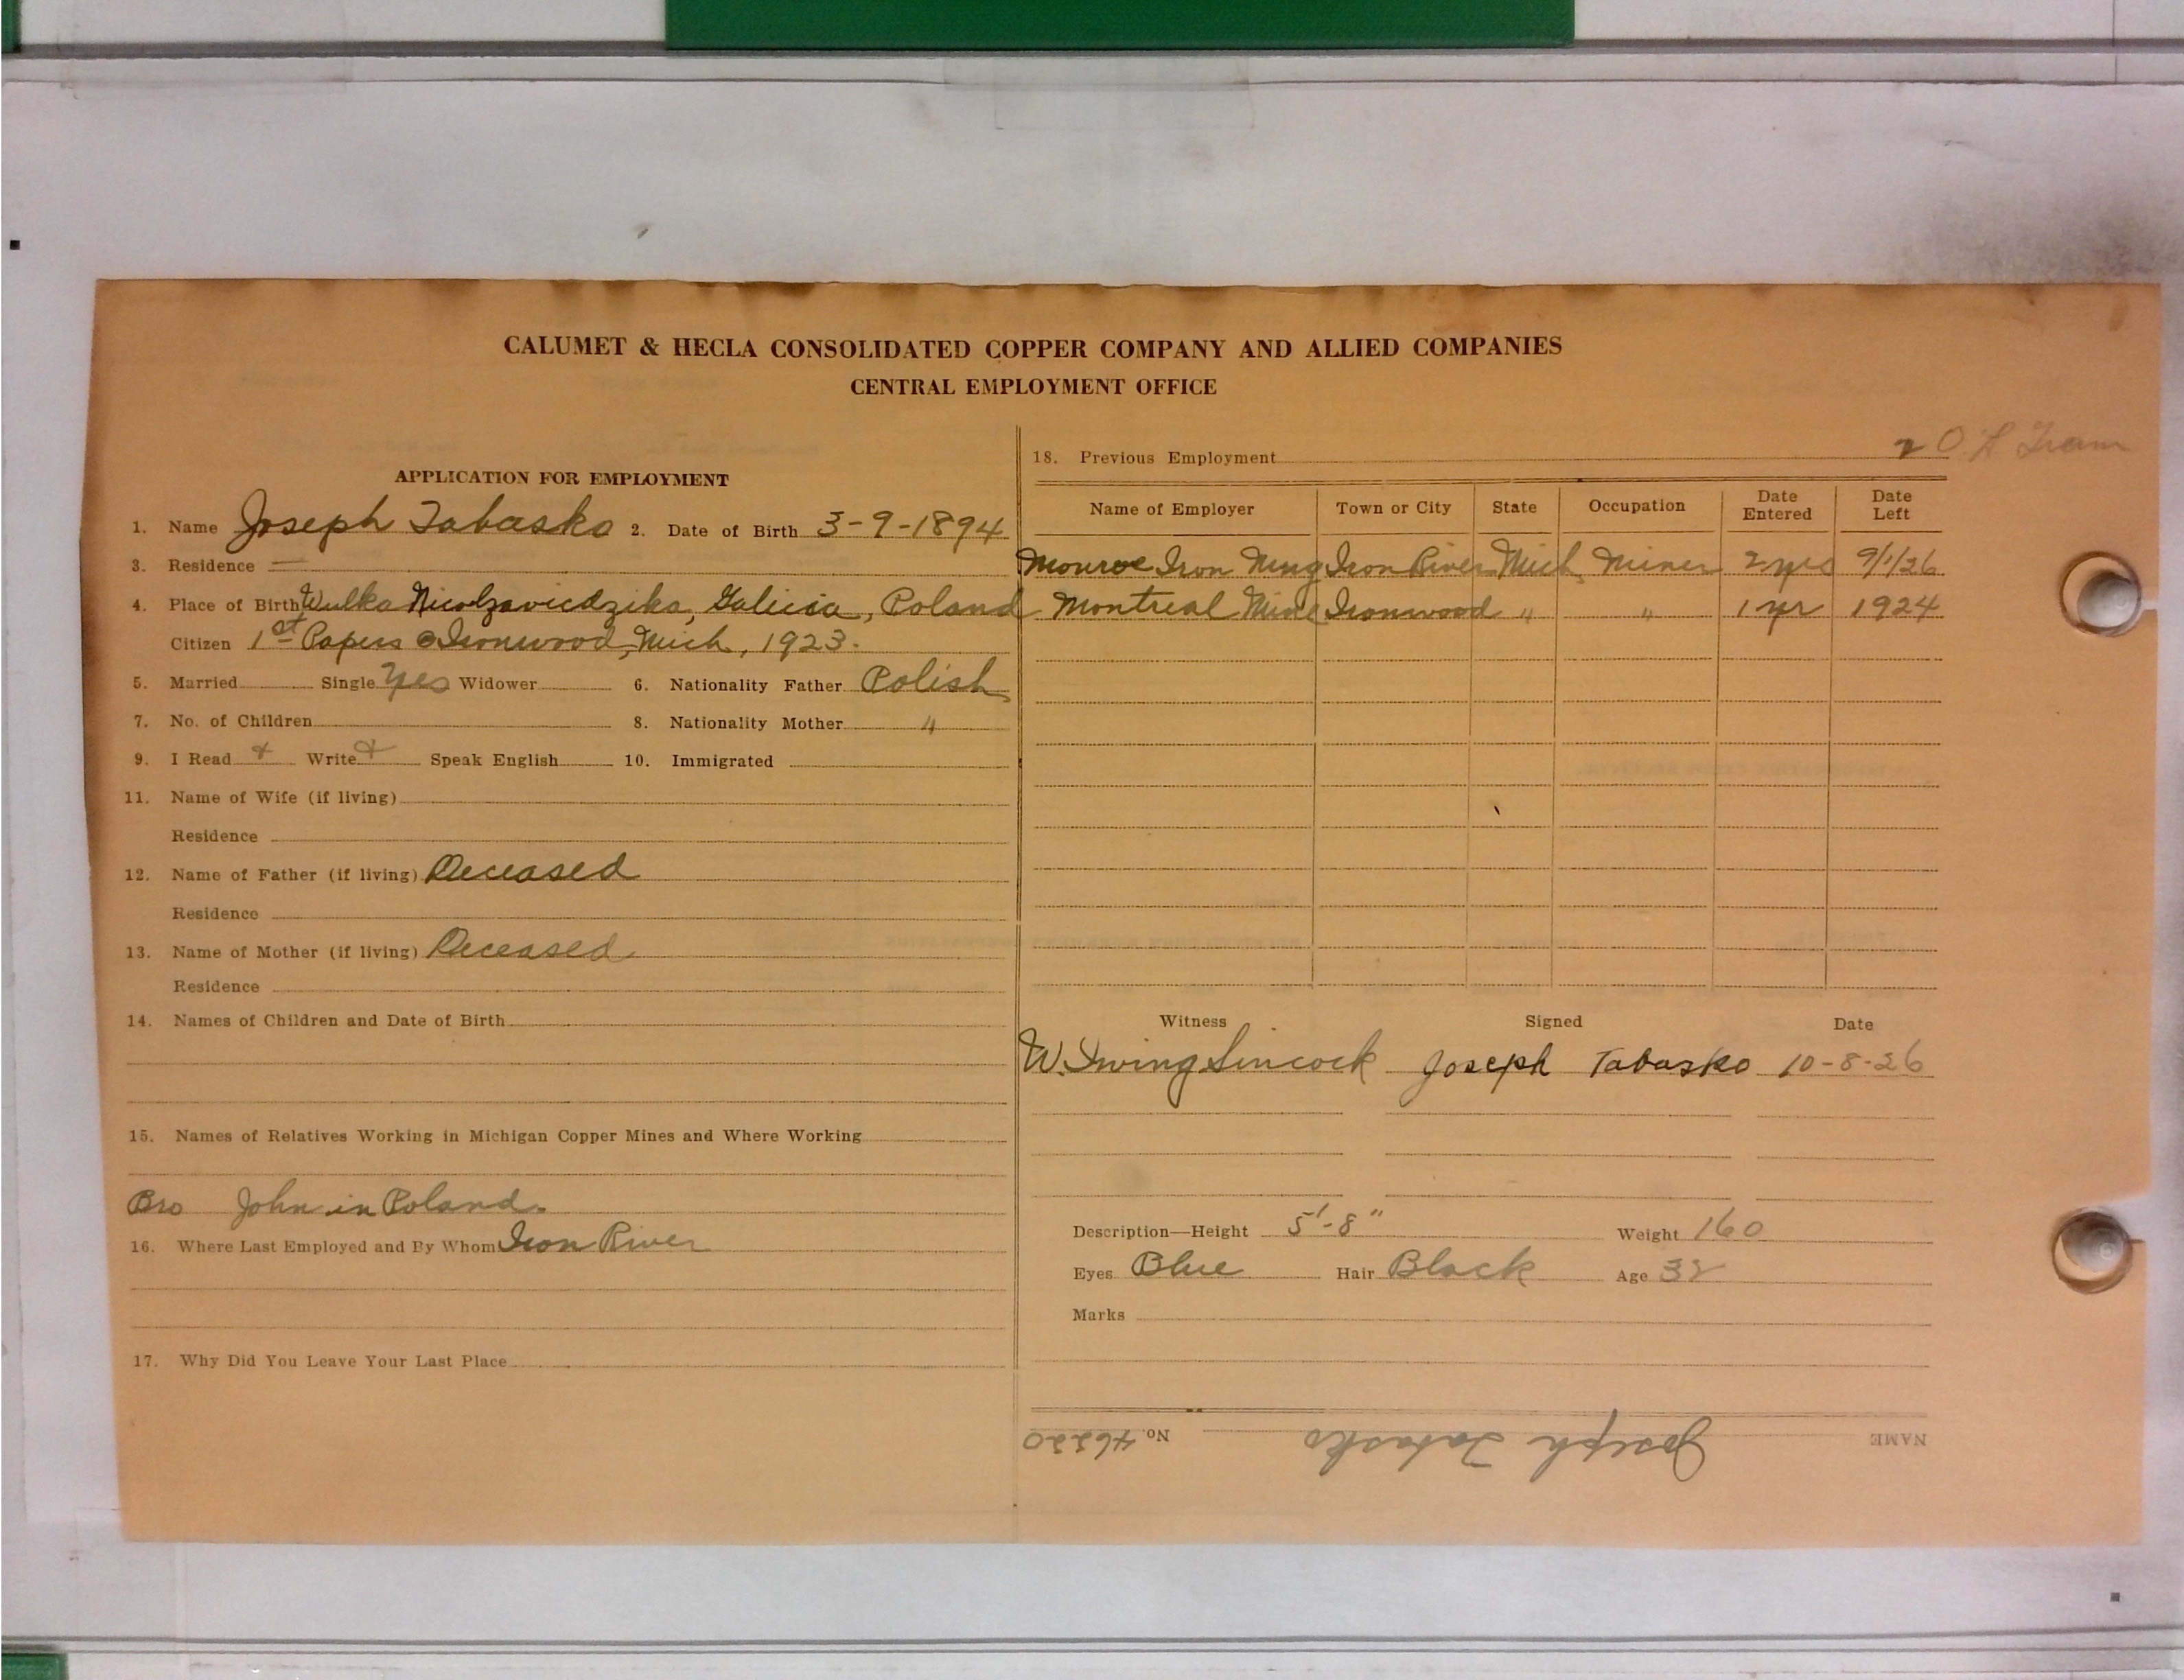 CALUMET & HECLA CONSOLIDATED COPPER COMPANY AND ALLIED COMPANIES
CENTRAL EMPLOYMENT OFFICE
APPLICATION FOR EMPLOYMENT
1. Name Joseph Tabasko 2. Date of Birth 3-9-1894
3. Residence —
4. Place of Birth Wulka Galicia, Poland
Citizen 1st Papers @ Ironwood, Mich, 1923.
5. Married Single Yes Widower 6. Nationality Father Polish
7. No. of Children 8. Nationality Mother "
9. I Read Write Speak English 10. Immigrated
11. Name of Wife (if living)
Residence
12. Name of Father (if living) Deceased
Residence
13. Name of Mother (if living) Deceased
Residence
14. Names of Children and Date of Birth
15. Names of Relatives Working in Michigan Copper Mines and Where Working
Bro John in Poland.
16. Where Last Employed and By Whom Iron River
17. Why Did You Leave Your Last Place
Tram
18. Previous Employment
Name of Employer Town or City State Occupation Date Entered Date Left
Monroe Iron Mng Iron River Mich Miner 2 yrs 9/1/26
Montreal Mine Ironwood " " 1 yr 1924
Witness Signed Date
W. Irwing Sincock Joseph Tabasko 10-8-26
Description—Height 5'-8" Weight 160
Eyes Blue Hair Black Age 32
Marks
NAME Joseph Tabasko No. 46220